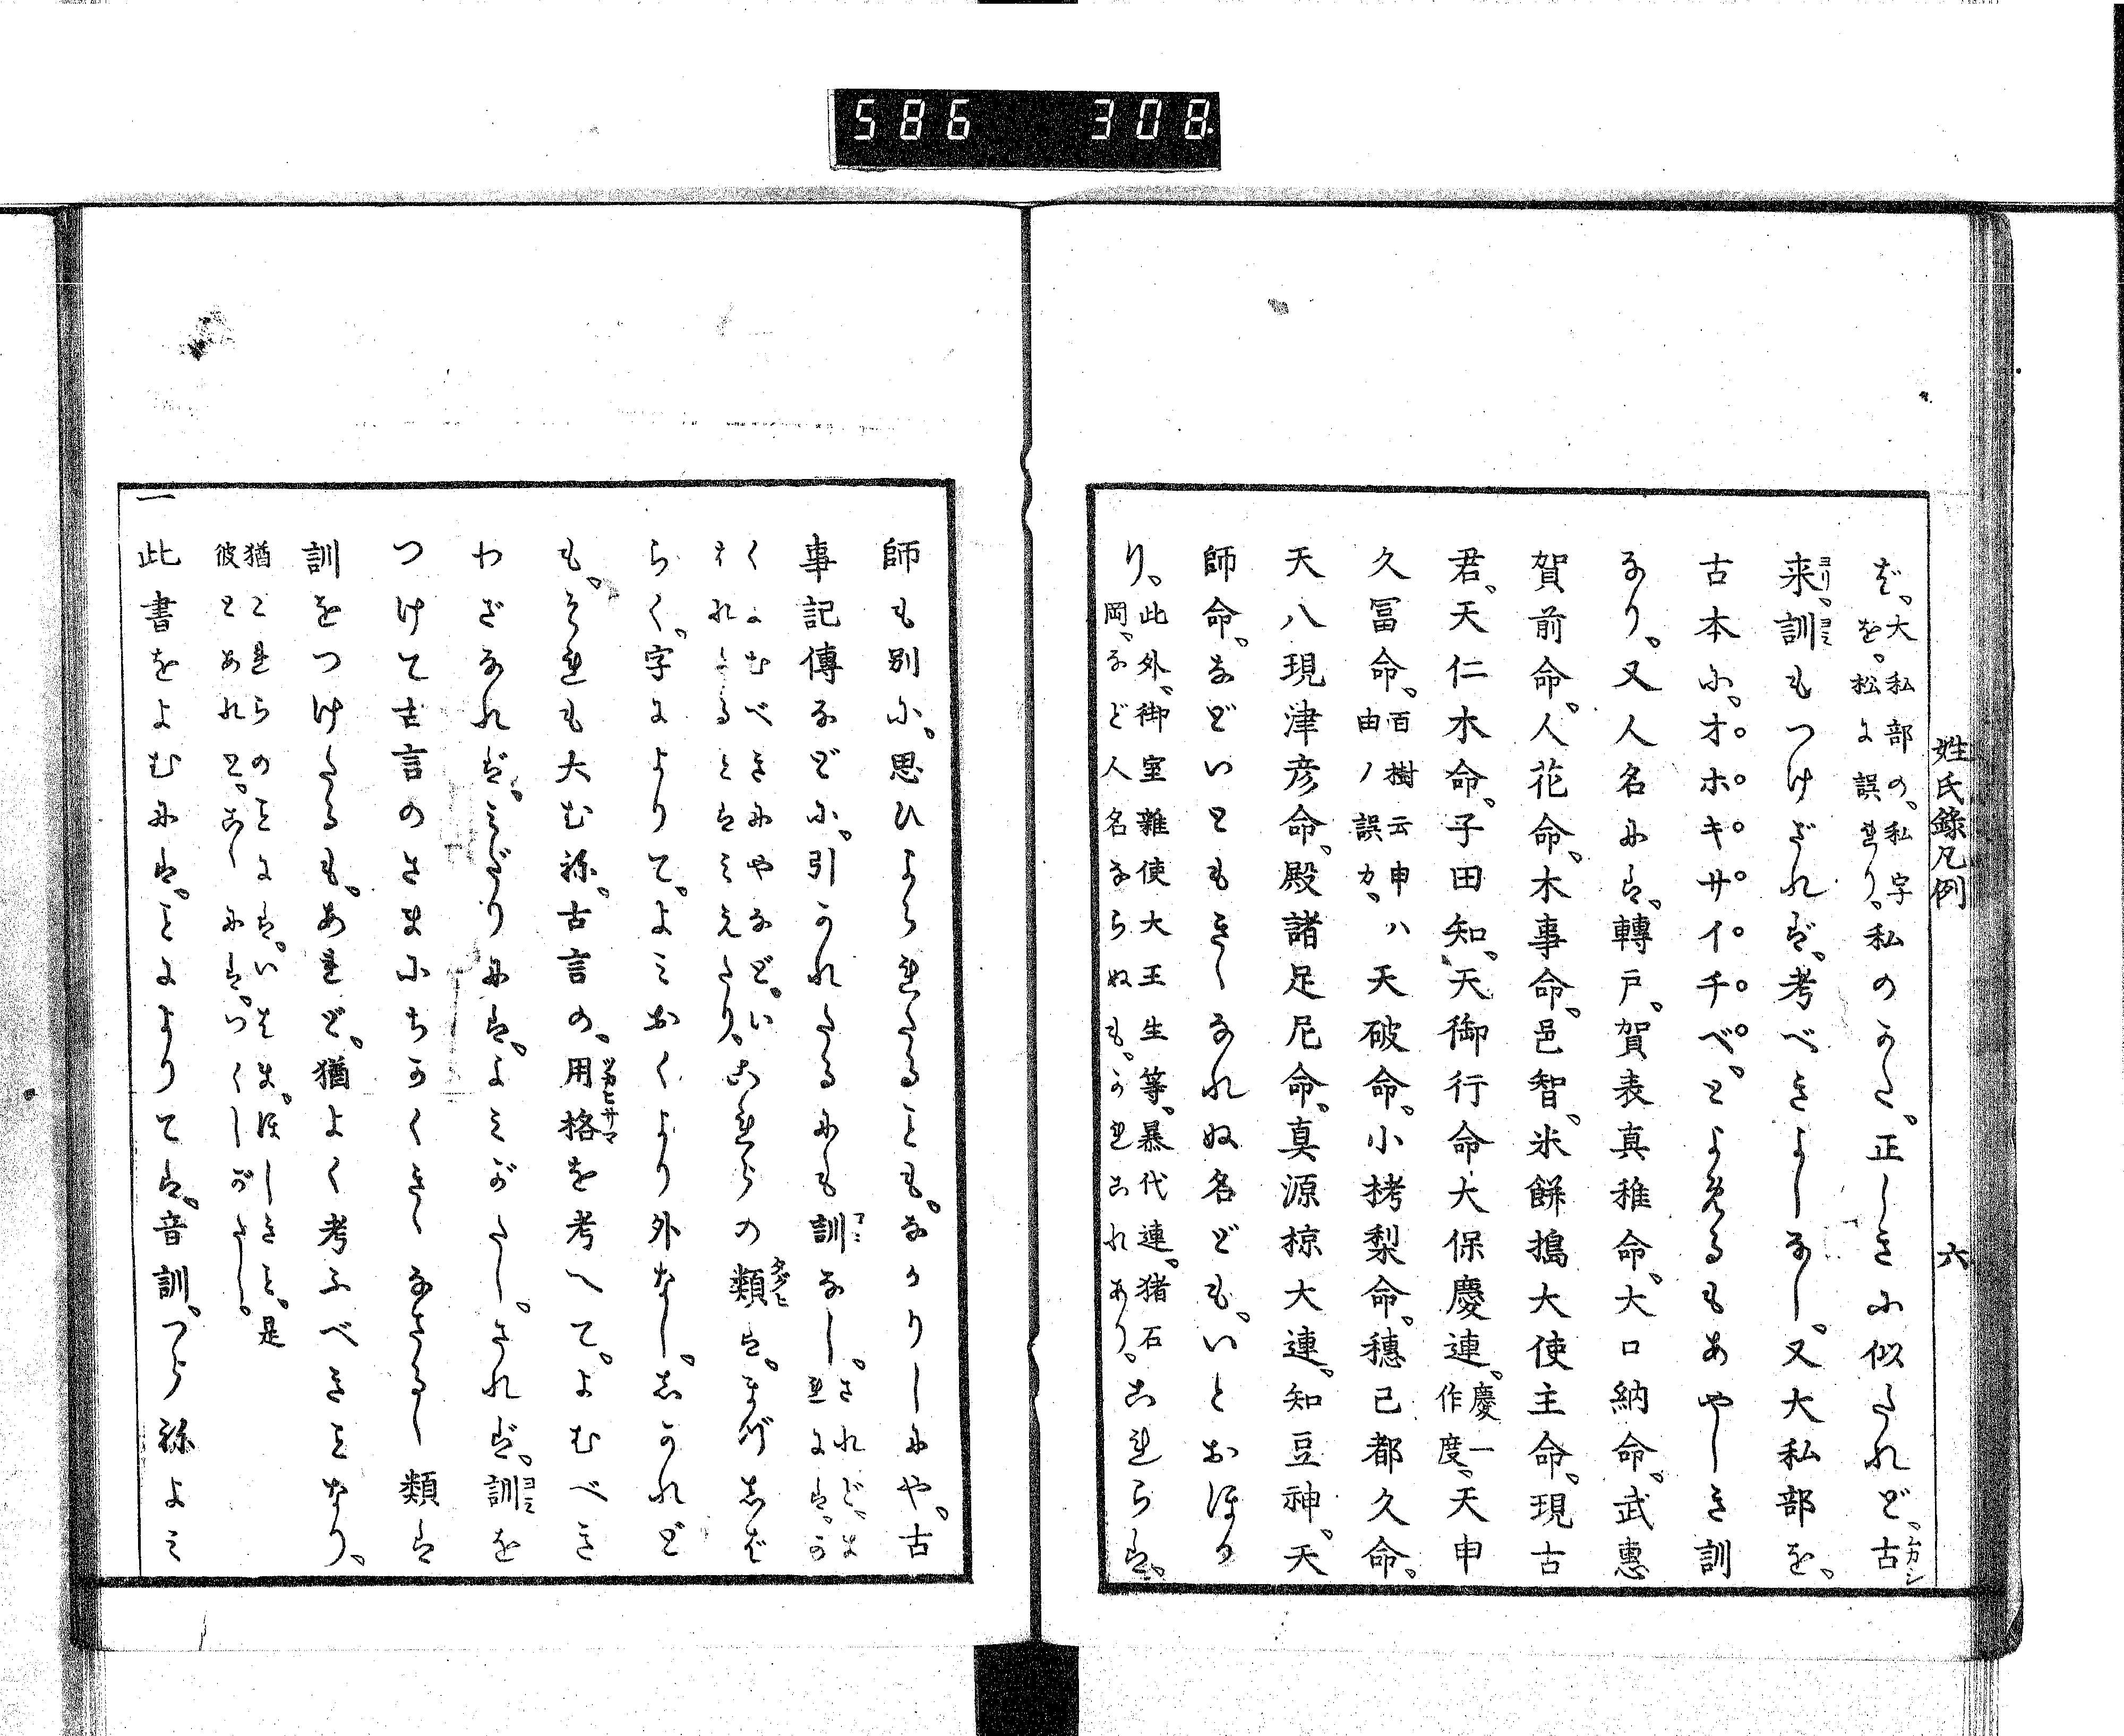 586 308
姓氏錄凡例 六
ば、大私部の、私字を、松に誤れり、私のかた、正しきに似たれど、古
来訓もつけざれば、考べきよしなし、又大私部を、
古本に、オホキサイチベ、とよめるもあやしき訓
なり、又人名には、轉戸、賀表真稚命、大口納命、武惠
賀前命、人花命、木事命、邑智、米餅搗大使主命、現古
君、天仁木命、子田知、天御行命、大保慶連、慶一作度、天申
久冨命、百樹云申ハ由ノ誤カ、天破命、小栲梨命、穗已都久命、
天八現津彦命、殿諸足尼命、真源椋大連、知豆神、天
師命、などいともきゝなれぬ名ども、いとおほか
り、此外、御室雜使大王生等、暴代連、猪石岡、など人名ならぬも、かれこれあり、これらは、
師も別に、思ひよられたることも、なかりしにや、古
事記傳などに、引かれたるにも訓なし、されど、まれには、か
くよむべきにやなど、いはれたると[は]みえたり、これらの類は、まづしば
らく、字によりて、よみおくより外なし、しかれど
も、それも大むね、古言の、用格を考へて、よむべき
わざなれば、みだりには、よみがたし、されば、訓を
つけて古言のさまにちかくきゝなさるゝ類は
訓をつけたるも、あれど、猶よく考ふべきことなり、
猶これらのことには、いはまほしきこと、是彼とあれど、こゝには、つくしがたし、
一此書をよむには、ことによりては、音訓、つらねよみ